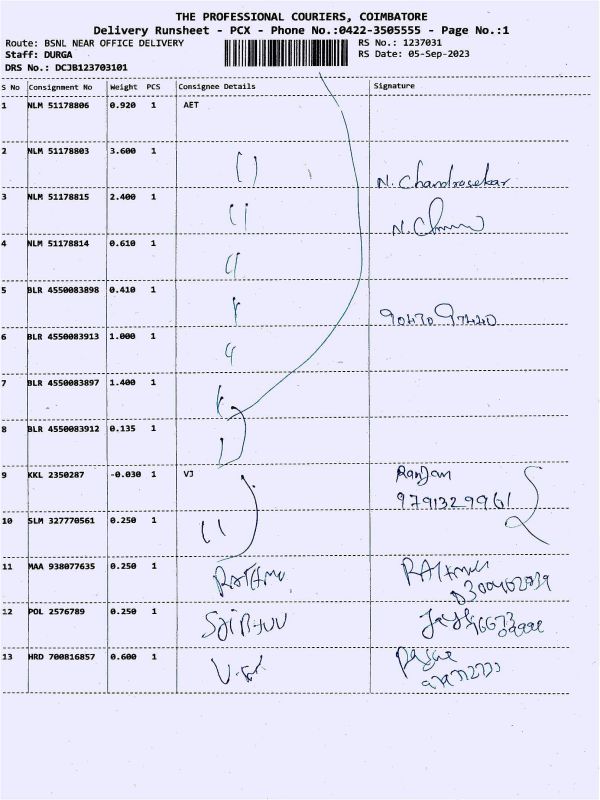 THE PROFESSIONAL COURIERS, COIMBATORE
Delivery Runsheet - PCX - Phone No.:0422-3505555 - Page No.:1
Route: BSNL NEAR OFFICE DELIVERY RS No.: 1237031
Staff: DURGA RS Date: 05-Sep-2023
DRS No.: DCJB123703101
S No Consignment No Weight PCS Consignee Details Signature
1 NLM 51178806 0.920 1 AET
2 NLM 51178803 3.600 1 N. Chandrasekar
3 NLM 51178815 2.400 1
4 NLM 51178814 0.610 1
5 BLR 4550083898 0.410 1
6 BLR 4550083913 1.000 1
7 BLR 4550083897 1.400 1
8 BLR 4550083912 0.135 1
9 KKL 2350287 -0.030 1 VJ Ranjan
9791329961
10 SLM 327770561 0.250 1
11 MAA 938077635 0.250 1
12 POL 2576789 0.250 1
13 HRD 700816857 0.600 1